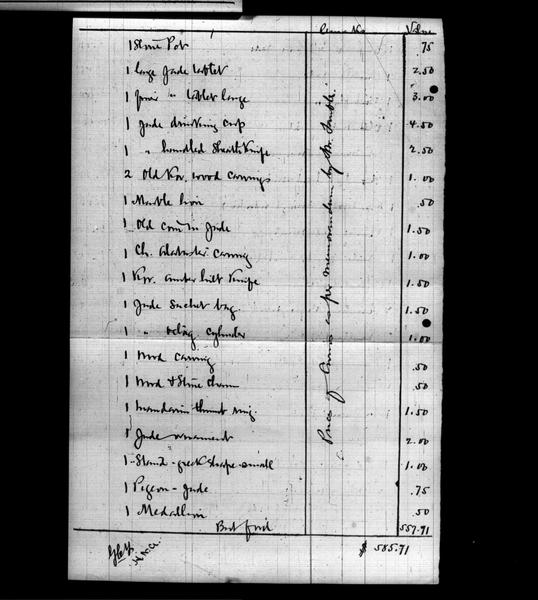 Value
1 Stone Pot 75
1 large Jade tablet 2.50
1 " tablet large 3.00
1 Jade drinking cup 4.50
1 " handled Sheath Knife 2.50
2 Old Kor. wood carvings 1.00
1 Marble lion .50
1 Old coin in Jade 1.50
1 Ch. alabaster carving 1.00
1 Kor. amber hilt Knife 1.50
1 Jade Sachet bag 1.50
1 " cylinder 1.00
1 Wood carving .50
1 Wood & Stone charm .50
1 Mandarin thumb ring. 1.50
1 Jade ornament 2.00
1 Stand - shape small 1.00
1 Pigeon - Jade .75
1 Medallion .50
Bot ford 557.71
$ 585.71
Prices of as per memorandum by Mr.